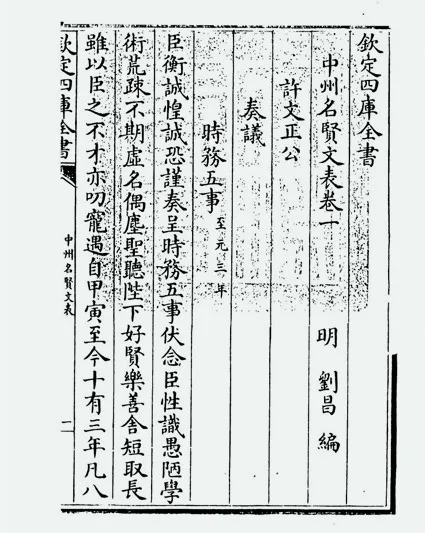 欽定四庫全書
中州名賢文表卷一
明 劉昌 編
許文正公
奏議
時務五事至元三年
臣衡誠惶誠恐謹奏呈時務五事伏念臣性識愚陋學
術荒疎不期虛名偶塵聖聽陛下好賢樂善舍短取長
雖以臣之不才亦叨寵遇自甲寅至今十有三年凡八
欽定四庫全書
中州名賢文表
二